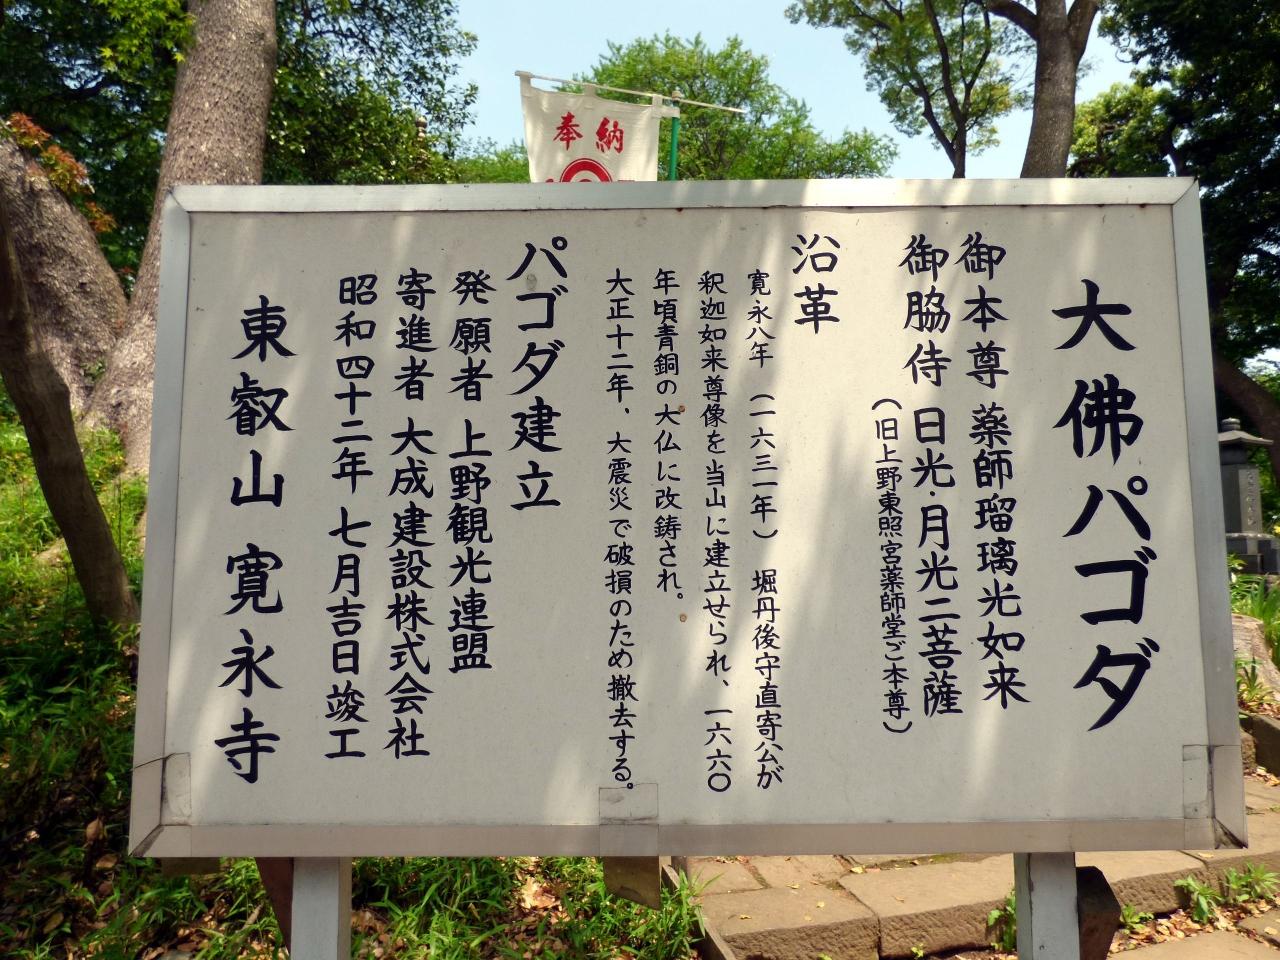 奉納
大佛パゴダ
御本尊 薬師瑠璃光如来
御脇侍 日光・月光二菩薩
（旧上野東照宮薬師堂ご本尊）
沿革
寛永八年（一六三一年）堀丹後守直寄公が
釈迦如来尊像を当山に建立せられ、一六六〇
年頃青銅の大仏に改鋳され。
大正十二年、大震災で破損のため撤去する。
パゴダ建立
発願者 上野観光連盟
寄進者 大成建設株式会社
昭和四十二年 七月吉日竣工
東叡山 寛永寺